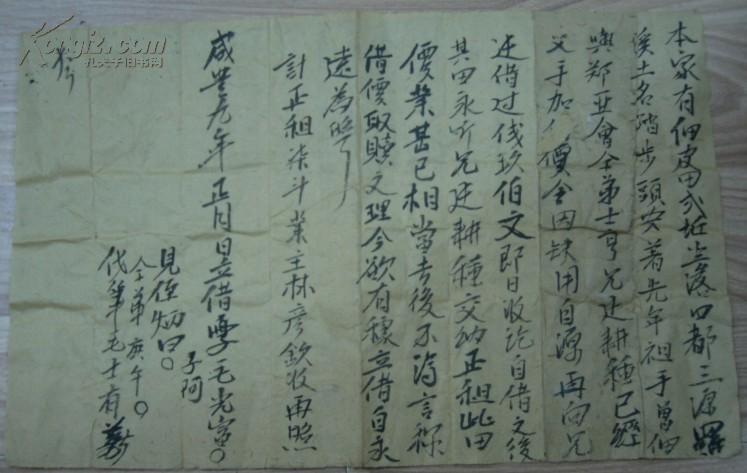 本家有佃皮田弍坵坐落四都三源
溪土名踏步頭安着先年祖手曾佃
與鄭亚會仝弟士亨兄廷耕種已經
父手加價今因缺用自源再向兄
廷借过伐玖伯文即日收讫自借之後
其田永听兄廷耕種交纳正租此田
價業甚已相當去後不得言称
借價取贖文理今欲有憑立借自永
遠為照
計正租柒斗業主林彦欽收再照
咸豐元年正月日立借字毛光富
子阿
見侄炳曰
仝弟庚午
代筆毛士有
Kongfz.com
孔夫子旧书网